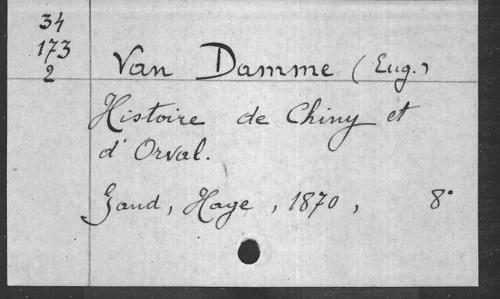 34
173
2
Van Damme (Eug.)
Histoire de Chiny et
d'Orval.
Gand, Hage, 1870, 8°